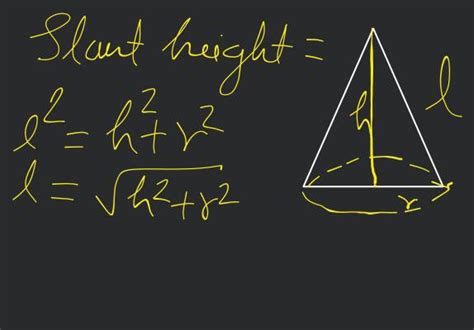 Slant height =
l² = h² + r²
l = √h² + r²
l
h
r